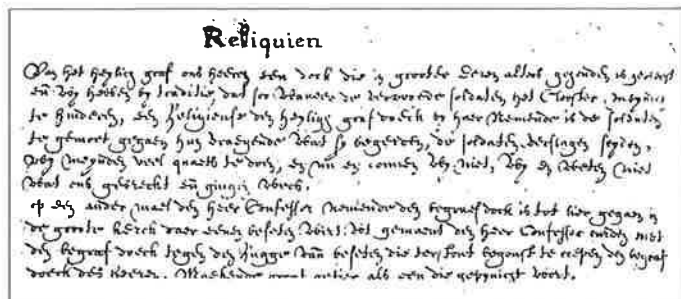 Reliquien
Van het heylich graf ons heeren een doek die in grooter eeren alters gehouden is geweest
en wy hebben by traditie, dat soo wanneer de verwoede soldaten het Clooster meynden
te hinderen, een Religieuse den heylig graf doeck by haer nemende is de soldaten
te gemoet gegaen hun vraegende wat sy begerden, de soldaten verslagen seyden,
wy meynden veel quaets te doen, en nu en connen wy niet, wy en weten niet
wat ons gebreckt en gingen wech.
den ander mael den heer Confessor nemende den begraef doek is tot lier gegaen in
de groote kerck daer eenen beseten wirt: tot gemaent den heer Confessor met
den begraf doeck tegen den rugge van beseten die terstont begonst te roepen den begraf
doeck des heeren. als een die gepynicht wort.